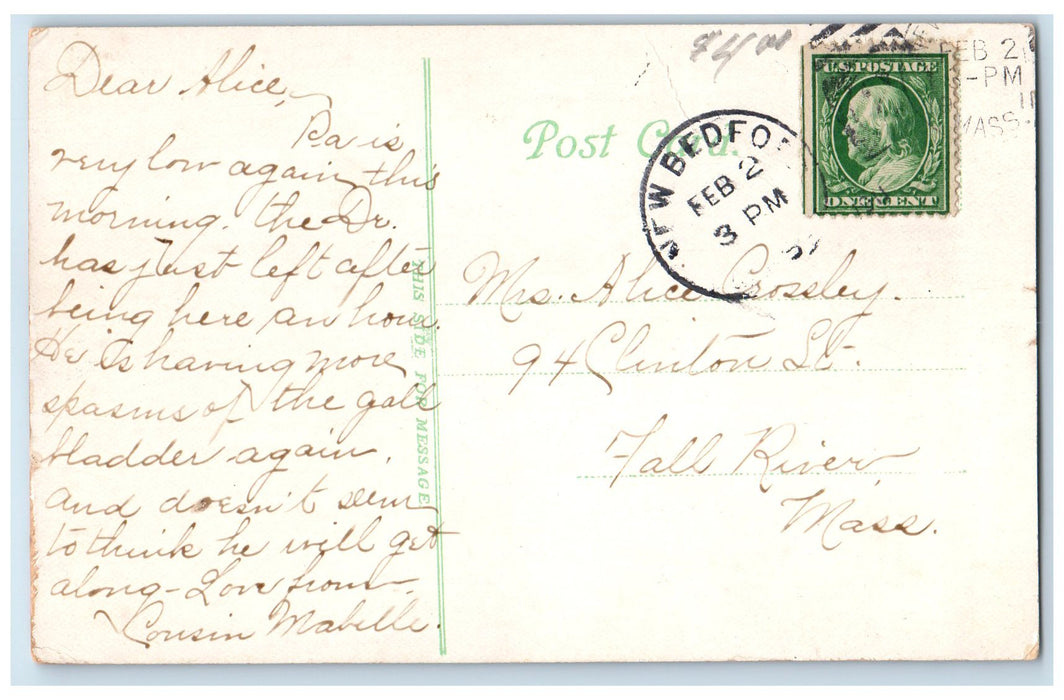 Dear Alice,
Pa is
very low again this
morning. the Dr.
has just left after
being here an hour.
He is having more
spasms of the gall
bladder again.
and doesn't seem
to think he will get
along - Love from
Cousin Mabelle.
THIS SIDE FOR MESSAGE
$4 00
Post Card.
NEW BEDFO
FEB 2
3 PM
U.S. POSTAGE
ONE CENT
FEB 21
-PM
MASS.
Mrs. Alice Crossley.
94 Clinton St.
Fall River
Mass.